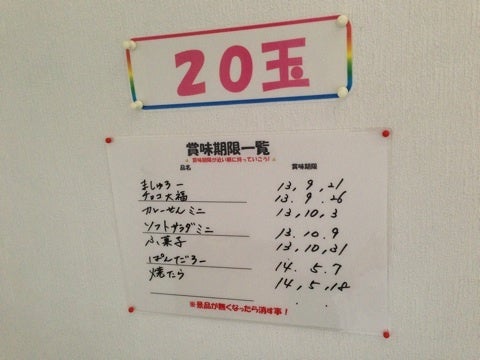 20玉
賞味期限一覧
賞味期限が近い順に持っていこう!
品名 賞味期限
ましゅろー 13, 9, 21
チョコ大福 13. 9. 26
カレーせんミニ 13, 10, 3
ソフトサラダミニ 13. 10. 9
ふ菓子 13, 10, 31
ぱんだろー 14. 5. 7
焼たら 14, 5, 18
※景品が無くなったら消す事!